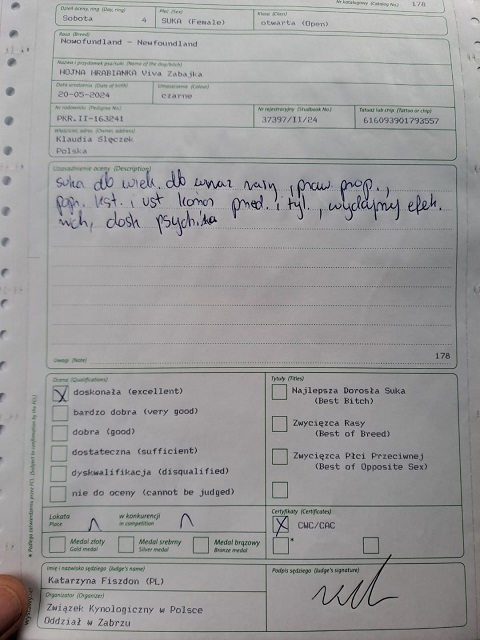 Dzień oceny, ring (Day, ring) Płeć (Sex) Klasa (Class) Nr katalogowy (Catalog No.) 178
Sobota 4 SUKA (Female) otwarta (Open)
Rasa (Breed)
Nowofundland - Newfoundland
Nazwa i przydomek psa/suki (Name of the dog/bitch)
HOJNA HRABIANKA Viva Zabajka
Data urodzenia (Date of birth) Umaszczenie (Colour)
20-05-2024 czarne
Nr rodowodu (Pedigree No.) Nr rejestracyjny (Studbook No.) Tatuaż lub chip. (Tattoo or chip)
PKR.II-163241 37397/II/24 616093901793557
Właściciel, adres (Owner, address)
Klaudia Ślęczek
Polska
Uzasadnienie oceny (Description)
suka db wiek. db wyraz rasy, praw prop.,
popr. kąt. i ust kończ przed. i tył., wydajny efek.
ruch, dosk psychika
Uwagi (Note) 178
Ocena (Qualifications) Tytuły (Titles)
X doskonała (excellent) Najlepsza Dorosła Suka
(Best Bitch)
bardzo dobra (very good)
dobra (good) Zwycięzca Rasy
(Best of Breed)
dostateczna (sufficient)
Zwycięzca Płci Przeciwnej
(Best of Opposite Sex)
dyskwalifikacja (disqualified)
nie do oceny (cannot be judged)
Lokata 1 w konkurencji 1 Certyfikaty (Certificates)
Place in competition X CWC/CAC
*
Medal złoty Medal srebrny Medal brązowy
Gold medal Silver medal Bronze medal
Imię i nazwisko sędziego (Judge's name) Podpis sędziego (Judge's signature)
Katarzyna Fiszdon (PL)
Organizator (Organizer)
Związek Kynologiczny w Polsce
Oddział w Zabrzu